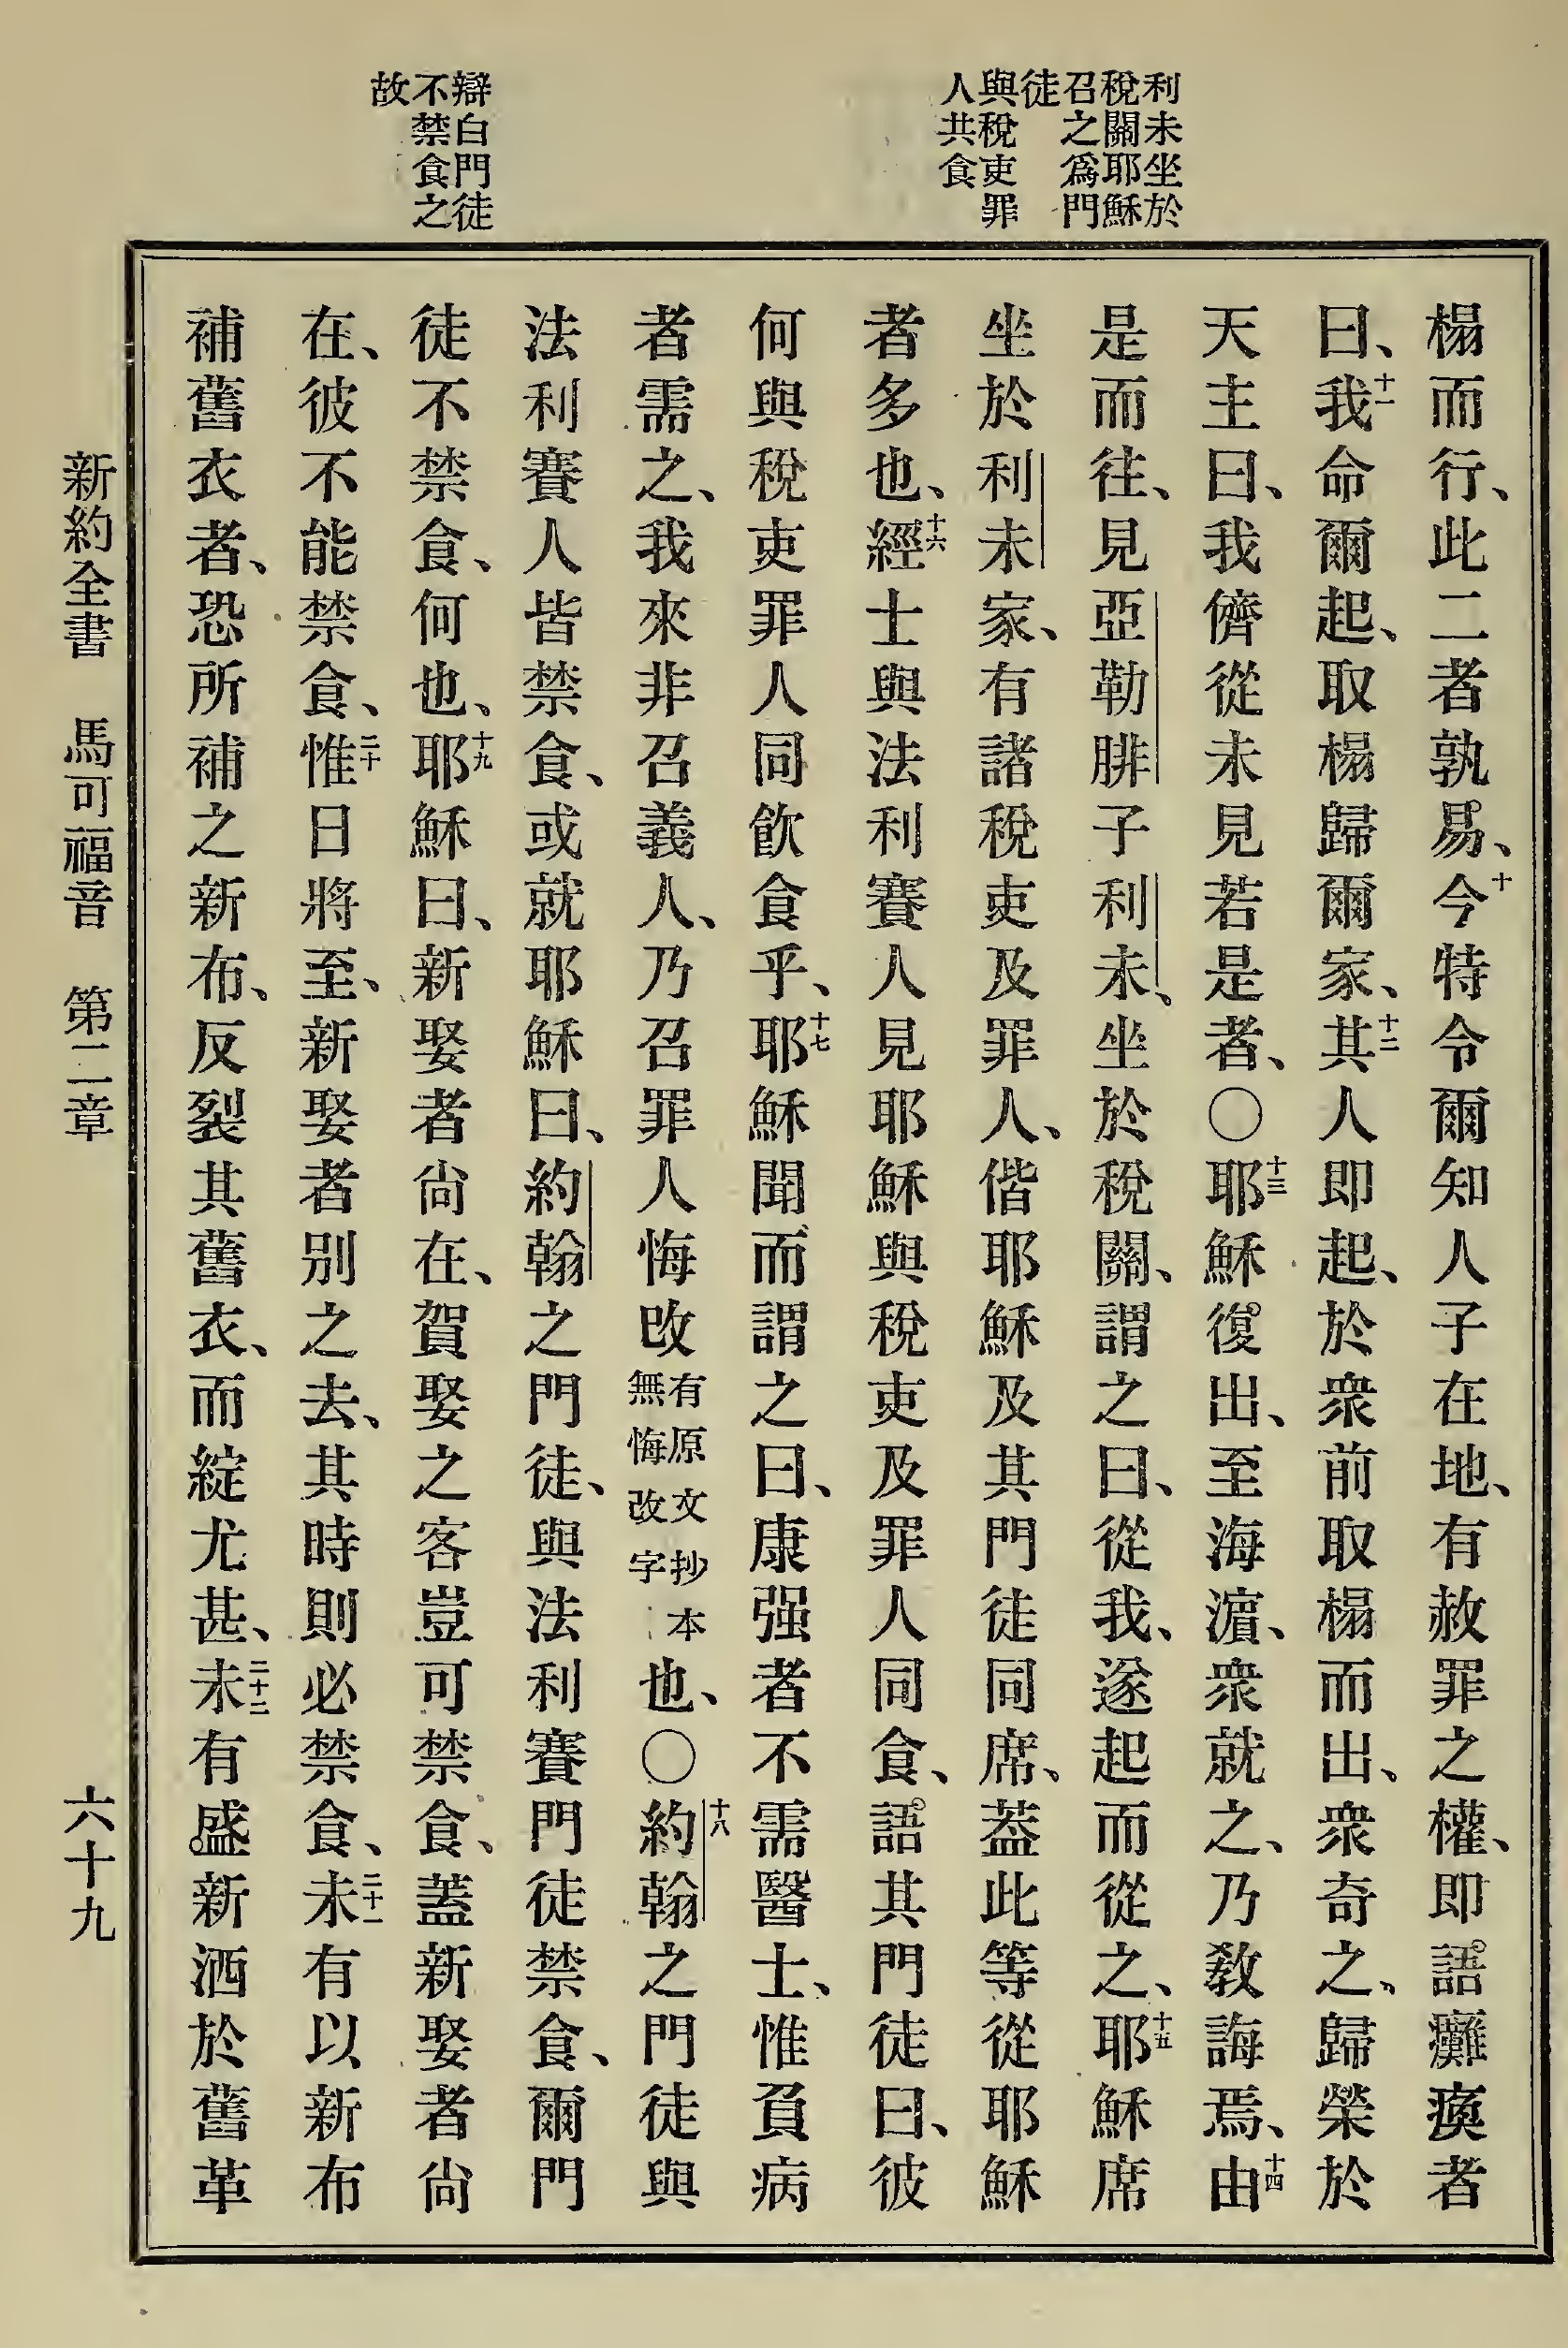 利未坐於
稅關耶穌
召之爲門
徒
與稅吏罪
人共食
辯白門徒
不禁食之
故
榻而行、此二者孰易、十今特令爾知人子在地、有赦罪之權、即語癱瘓者
曰、十一我命爾起、取榻歸爾家、十二其人即起、於衆前取榻而出、衆奇之、歸榮於
天主曰、我儕從未見若是者、〇十三耶穌復出、至海濵、衆就之、乃教誨焉、十四由
是而往、見亞勒腓子利未、坐於稅關、謂之曰、從我、遂起而從之、十五耶穌席
坐於利未家、有諸稅吏及罪人、偕耶穌及其門徒同席、葢此等從耶穌
者多也、十六經士與法利賽人見耶穌與稅吏及罪人同食、語其門徒曰、彼
何與稅吏罪人同飮食乎、十七耶穌聞而謂之曰、康强者不需醫士、惟負病
者需之、我來非召義人、乃召罪人悔改有原文抄本無悔改字也、〇十八約翰之門徒與
法利賽人皆禁食、或就耶穌曰、約翰之門徒、與法利賽門徒禁食、爾門
徒不禁食、何也、十九耶穌曰、新娶者尙在、賀娶之客豈可禁食、蓋新娶者尙
在、彼不能禁食、二十惟日將至、新娶者別之去、其時則必禁食、二十一未有以新布
補舊衣者、恐所補之新布、反裂其舊衣、而綻尤甚、二十二未有盛新酒於舊革
新約全書 馬可福音 第二章 六十九